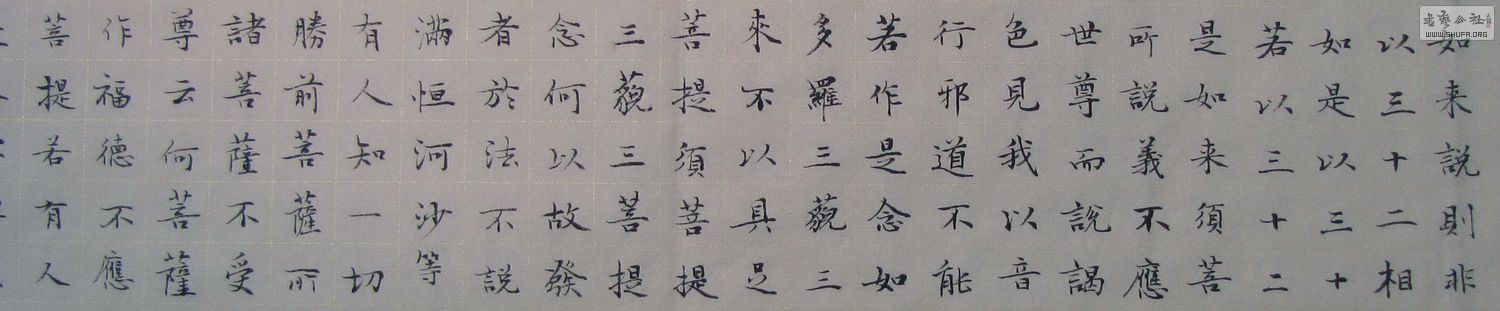 如来說則非
以三十二相
如是以三十
若以三十二
是如来須菩
所說義不應
世尊而說謁
色見我以音
行邪道不能
若作是念如
多羅三藐三
來不以具足
菩提須菩提
三藐三菩提
念何以故發
者於法不說
滿恒河沙等
有人知一切
勝前菩薩所
諸菩薩不受
尊云何菩薩
作福德不應
菩提若有人
書藝公社
WWW.SHUFA.ORG